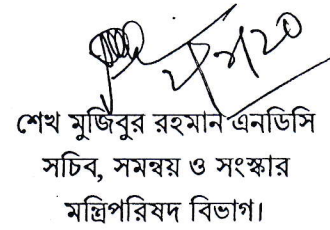 শেখ মুজিবুর রহমান এনডিসি
সচিব, সমন্বয় ও সংস্কার
মন্ত্রিপরিষদ বিভাগ।